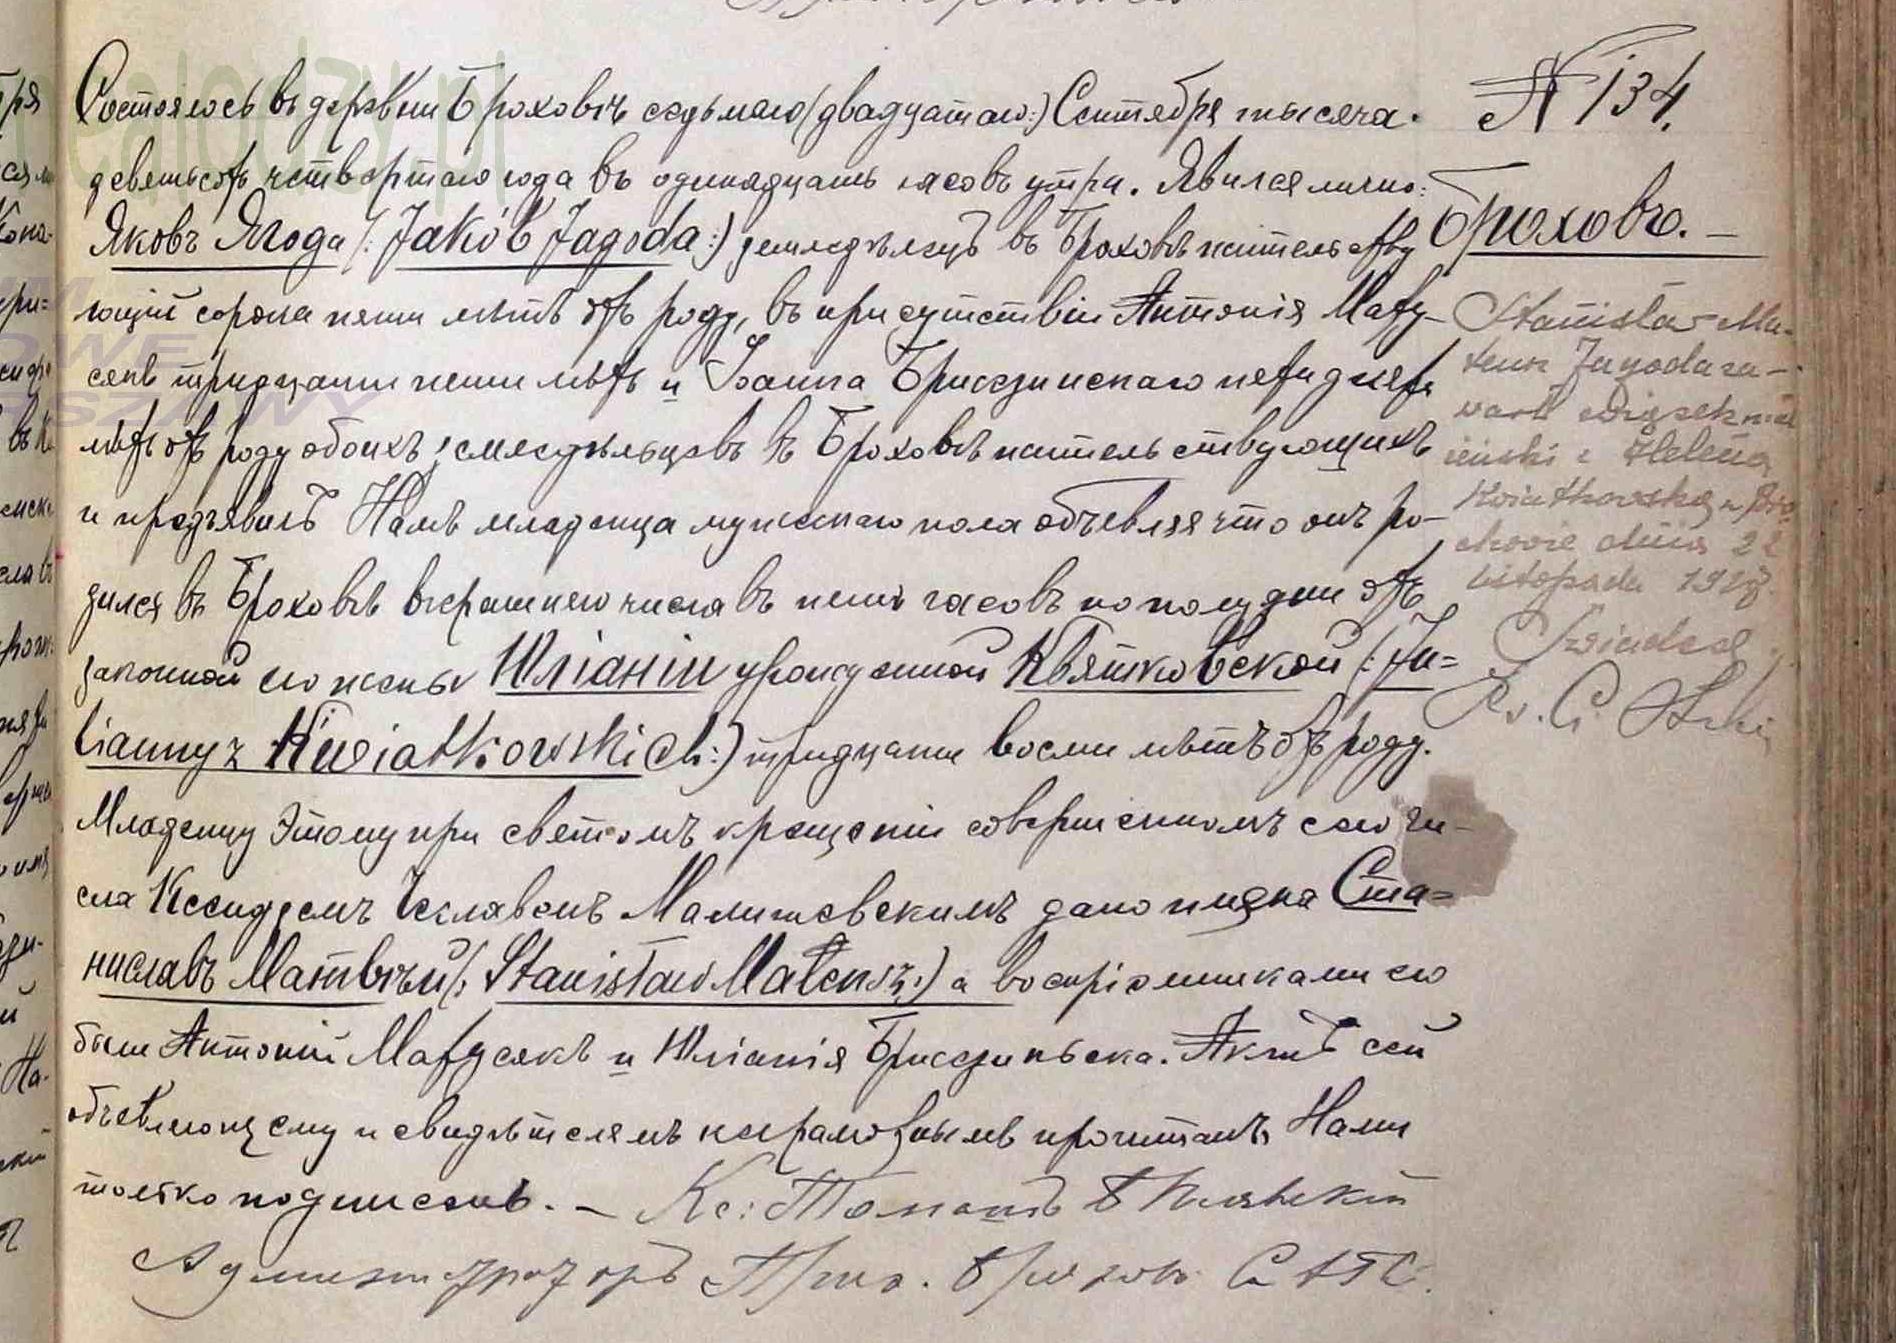 № 134.
Броховъ. —
Состоялось въ деревни Броховъ седьмаго (двадцатаго:) Сентября тысяча
девятьсотъ четвертаго года въ одинадцать часовъ утра. Явился лично:
Яковъ Ягода (: Jakób Jagoda :) земледѣлецъ въ Броховѣ жительству
ющій сорока пяти лѣтъ отъ роду, въ присутствіи Антонія Мату-
сякъ тридцати пяти лѣтъ и Іоанна пятидесяти
лѣтъ отъ роду обоихъ земледѣльцевъ въ Броховѣ жительствующихъ
и предъявилъ Намъ младенца мужскаго пола объявляя что онъ ро-
дился въ Броховѣ вчерашняго числа въ пять часовъ по полудни отъ
законной его жены Юліанны урожденной Квятковской (: Ju=
lianny z Kwiatkowskich :) тридцати восми лѣтъ отъ роду.
Младенцу Этому при святомъ крещеніи совершенномъ сего чи-
сла Ксендземъ Малишевскимъ дано имя Ста=
ниславъ Матвѣй (: Stanisław Mateusz :) а воспріемниками его
были Антоній Матусякъ и Юліанія Актъ сей
объявляющему и свидѣтелямъ неграмотнымъ прочитанъ Нами
только подписанъ. — Кс:
Администраторъ Прих. Броховъ
Stanisław Ma-
teusz Jagoda za-
warł związek mał
żeński z Heleną
Kwiatkowską w Bro
chowie dnia 22
listopada 1927
Świadczy
Ks.